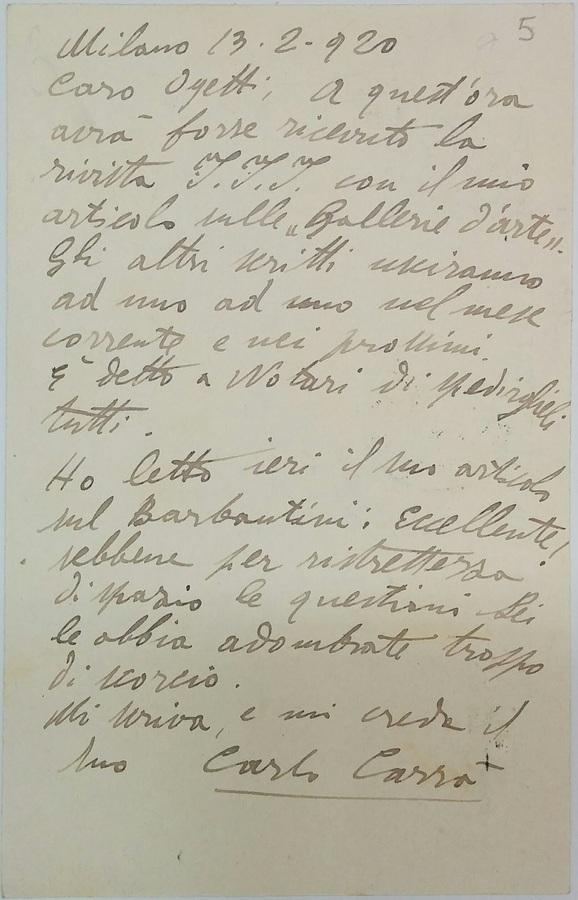 5
Milano 13.2-920
Caro Ojetti, A quest'ora
avrà forse ricevuto la
rivista I.I.I. con il mio
articolo sulle „Gallerie d'arte„.
Gli altri scritti usciranno
ad uno ad uno nel mese
corrente e nei prossimi.
È detto a Notari di spedirglieli
tutti.
Ho letto ieri il suo articolo
sul Barbantini: Eccellente!
sebbene per ristrettezza
di spazio le questioni Lei
le abbia adombrate troppo
di scorcio.
Mi scriva, e mi creda il
suo Carlo Carrà